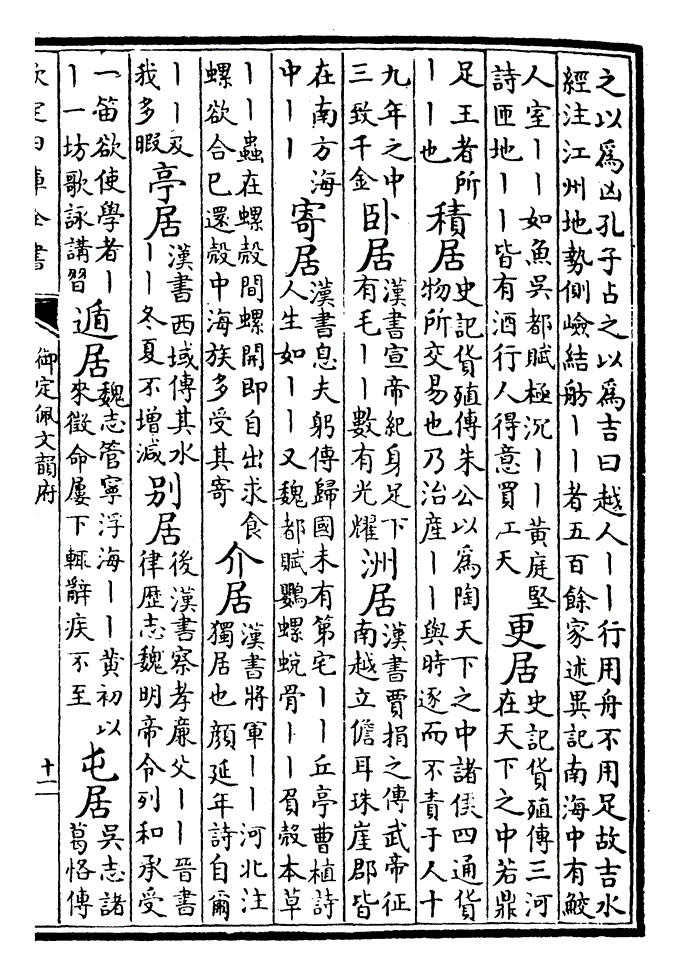 之以爲凶孔子占之以爲吉曰越人丨丨行用舟不用足故吉水
經注江州地勢側嶮結舫丨丨者五百餘家述異記南海中有鮫
人室丨丨如魚吳都賦極沉丨丨黃庭堅
詩匝地丨丨皆有酒行人得意買工天
更居
史記貨殖傳三河
在天下之中若鼎
足王者所
丨丨也
積居
史記貨殖傳朱公以爲陶天下之中諸侯四通貨
物所交易也乃治産丨丨與時逐而不責于人十
九年之中
三致千金
卧居
漢書宣帝紀身足下
有毛丨丨數有光耀
洲居
漢書賈捐之傳武帝征
南越立儋耳珠崖郡皆
在南方海
中丨丨
寄居
漢書息夫躬傳歸國未有第宅丨丨丘亭曹植詩
人生如丨丨又魏都賦鸚螺蛻骨丨丨眉殻本草
丨丨蟲在螺殻間螺開即自出求食
螺欲合已還殻中海族多受其寄
介居
漢書將軍丨丨河北注
獨居也顔延年詩自爾
丨丨及
我多暇
亭居
漢書西域傳其水
丨丨冬夏不增減
别居
後漢書察孝廉父丨丨晉書
律歴志魏明帝令列和承受
一笛欲使學者丨
丨一坊歌詠講習
遁居
魏志管寧浮海丨丨黄初以
來徵命屢下輒辭疾不至
屯居
吳志諸
葛恪傳
欽定四庫全書
御定佩文韻府
十二